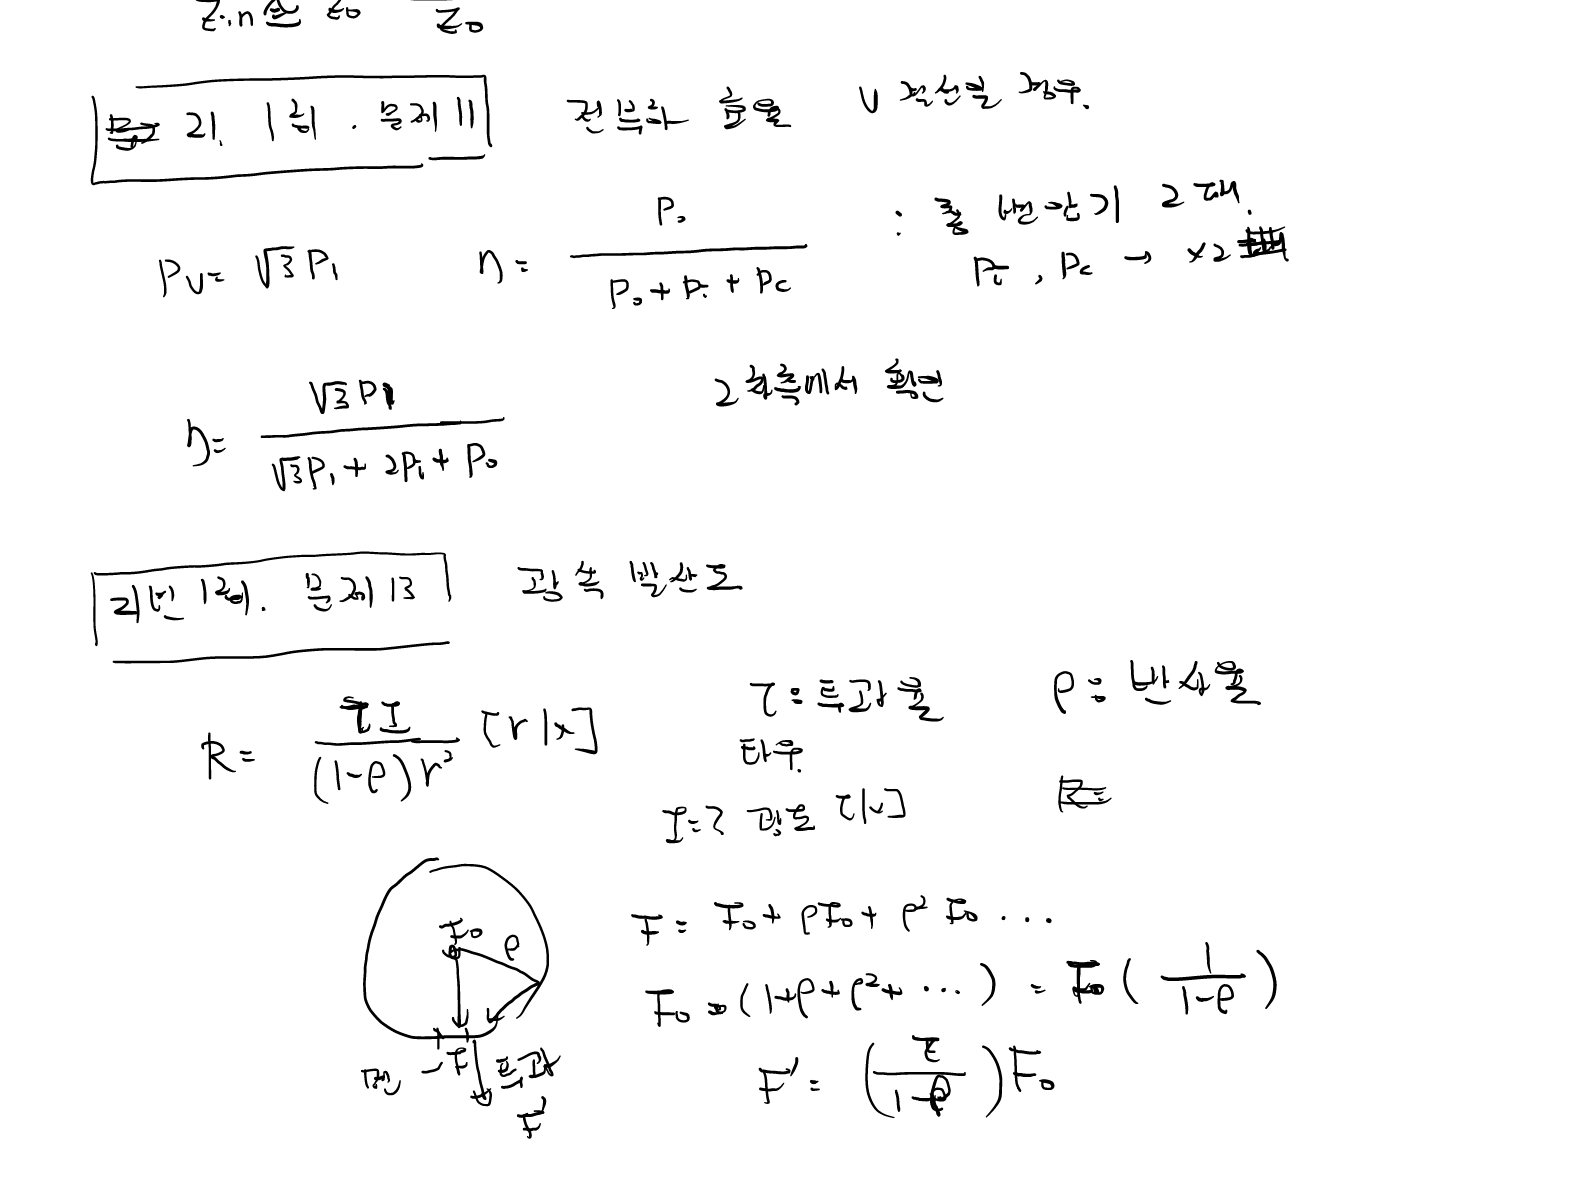 Zin ≐ Z₀ Z₀
21. 1회. 문제 11 전부하 효율 V 결선일 경우.
P_V = √3 P₁ η = P₀ / (P₀ + Pᵢ + P_C) : 총 변압기 2대.
Pᵢ, P_C → ×2
η = √3 P₁ / (√3 P₁ + 2Pᵢ + P₀) 2차측에서 확인
21년 1회. 문제 13 광속 발산도
R = τI / ((1-ρ)r²) [rlx] τ : 투과율 ρ : 반사율
타우.
I = ? 광도 R =
F₀ ρ
F = F₀ + ρF₀ + ρ² F₀ ...
F₀ (1+ρ+ρ²+ ...) = F₀ (1 / (1-ρ))
면 F 투과 F' = (τ / (1-ρ)) F₀
F'